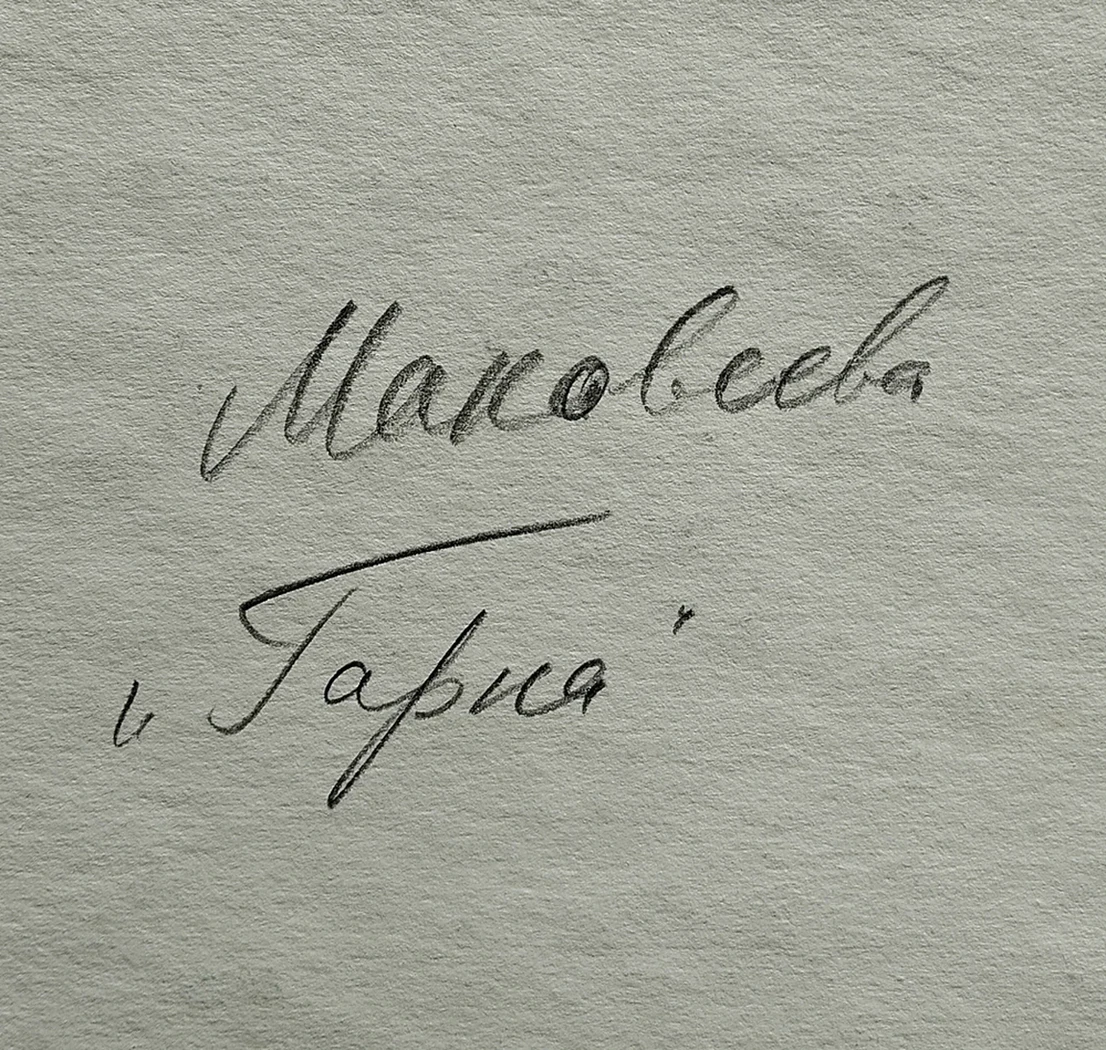 Маковеева
„Гарна"